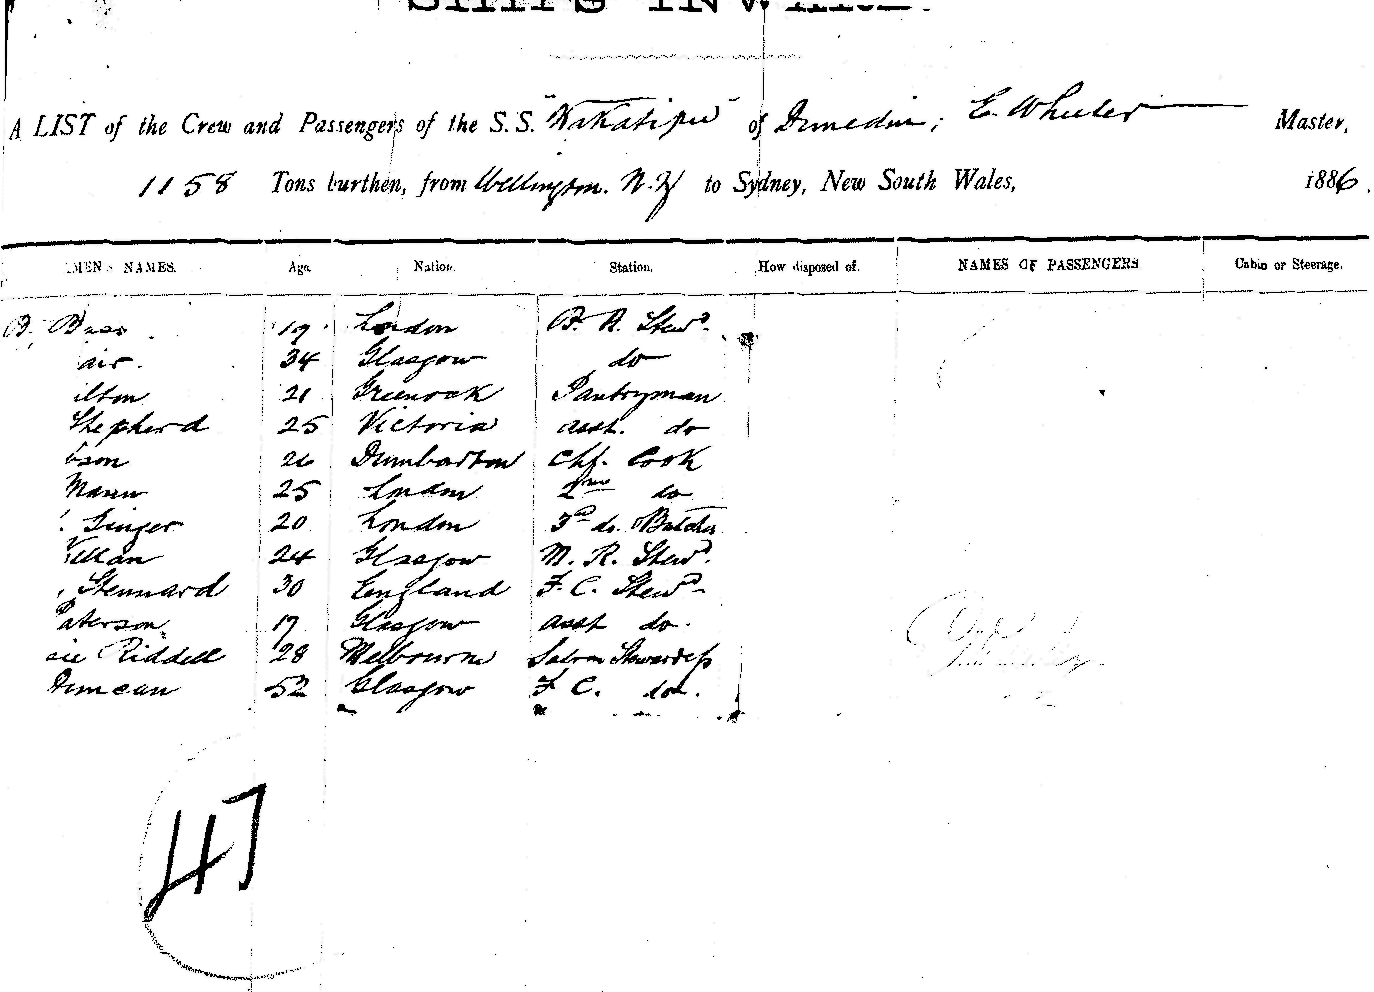 SHIPS INWARD.
A LIST of the Crew and Passengers of the S.S. "Wakatipu" of Dunedin; E. Wheeler Master,
1158 Tons burthen, from Wellington. N.Z to Sydney, New South Wales, 1886.
MEN NAMES. Age. Nation. Station. How disposed of. NAMES OF PASSENGERS Cabin or Steerage.
B. Bass 19 London B. R. Stewd.
air. 34 Glasgow do
ilton 21 Greenock Pantryman
Shepherd 25 Victoria asst. do
bson 26 Dumbarton Chf. Cook
Mann 25 London 2nd do
Ginger 20 London 3rd do. Butcher
24 Glasgow M. R. Stewd.
Stennard 30 England F. C. Stewd.
aterson 17 Glasgow asst do.
sie Riddell 28 Melbourne Saloon Stewardess
Duncan 52 Glasgow F C. do.
47